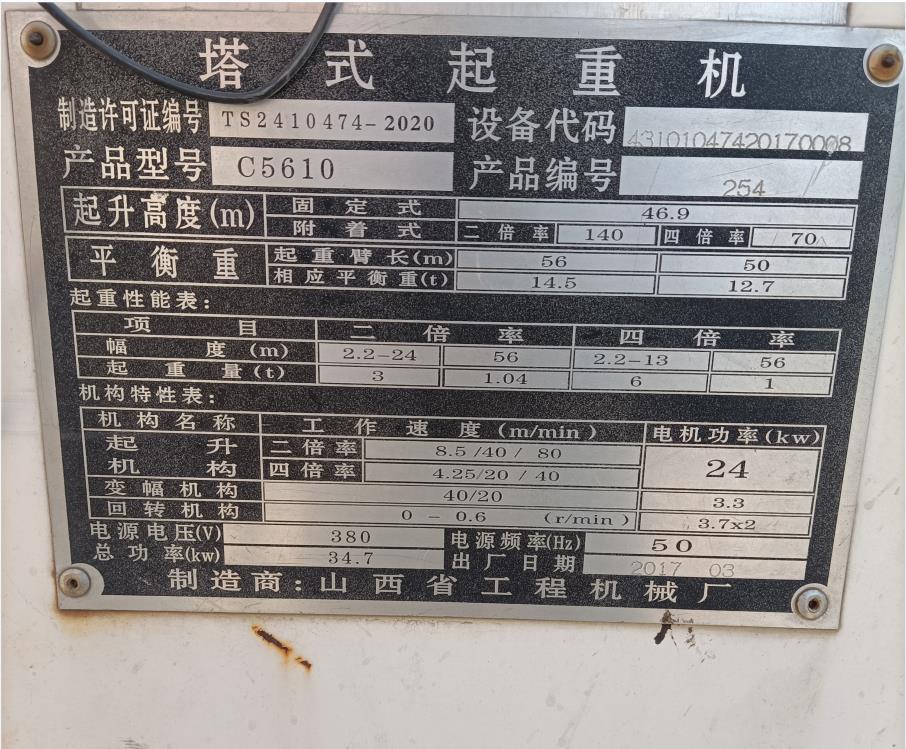 塔式起重机
制造许可证编号 TS2410474-2020 设备代码 43101047420170008
产品型号 C5610 产品编号 254
起升高度(m) 固定式 46.9
附着式 二倍率 140 四倍率 70
平衡重 起重臂长(m) 56 50
相应平衡重(t) 14.5 12.7
起重性能表:
项目 二倍率 四倍率
幅度(m) 2.2-24 56 2.2-13 56
起重量(t) 3 1.04 6 1
机构特性表:
机构名称 工作速度(m/min) 电机功率(kw)
起升机构 二倍率 8.5/40/80 24
四倍率 4.25/20/40
变幅机构 40/20 3.3
回转机构 0-0.6 (r/min) 3.7x2
电源电压(V) 380 电源频率(Hz) 50
总功率(kw) 34.7 出厂日期 2017 03
制造商:山西省工程机械厂